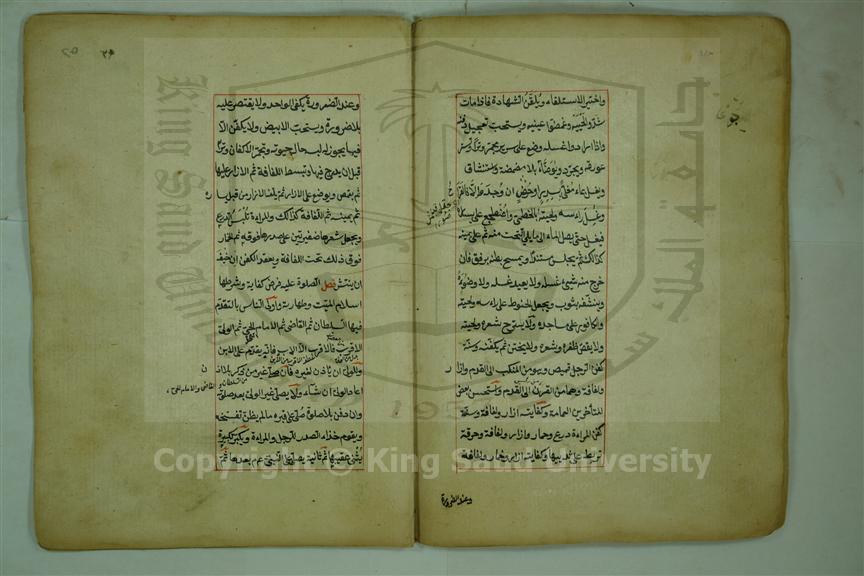 واختير الاستلقاء ويلقن الشهادة فاذا مات
شدوا لحييه وغمضوا عينيه ويستحب تعجيل دفنه
واذا ارادوا غسله وضع على سرير مجمر وترا وستر
عورته ويجرد ويوضأ بلا مضمضة واستنشاق
ويغلى بماء مغلي بسدر او حرض ان وجد والا فالقراح
وغسل راسه ولحيته بالخطمي واضجع على يساره
فيغسل حتى يصل الماء الى ما يلي التخت منه ثم على يمينه
كذلك ثم يجلس مستندا ويمسح بطنه برفق فان
خرج منه شيء غسله ولا يعيد غسله ولا وضوءه
وينشفه بثوب ويجعل الحنوط على راسه ولحيته
والكافور على مساجده ولا يسرح شعره ولحيته
ولا يقص ظفره وشعره ولا يختن ثم يكفنه وسنة
كفن الرجل قميص وهو من المنكب الى القدم وازار
ولفافة وهما من القرن الى القدم واستحسن بعض
المتأخرين العمامة وكفايته ازار ولفافة وسنة
كفن المراءة درع وخمار وازار ولفافة وخرقة
تربط على ثدييها وكفايته ازار وخمار ولفافة
وعند الضرورة
وعند الضرورة يكفى الواحد ولا يقتصر عليه
بلا ضرورة ويستحب الابيض ولا يكفن الا
فيما يجوز له لبسه حال حيوته وتجمر الاكفان وترا
قبل ان يدرج فيها وتبسط اللفافة ثم الازار عليها
ثم يقمص ويوضع على الازار ثم يلف الازار من قبل يساره
ثم يمينه ثم اللفافة كذلك والمراءة تلبس الدرع
ويجعل شعرها ضفيرتين على صدرها فوقه ثم الخمار
فوق ذلك تحت اللفافة ويعقد الكفن ان خيف
ان ينتشر فصل الصلوة عليه فرض كفاية وشرطها
اسلام الميت وطهارته واولى الناس بالتقدم
فيها السلطان ثم القاضي ثم امام الحي ثم الولي
الاقرب فالاقرب الا الاب فانه يقدم على الابن
وللولي ان ياذن لغيره فان صلى غير من ذكر بلا اذن
اعاد الولي ان شاء ولا يصلي غير الولي بعد صلوته
وان دفن بلا صلوة صلى على قبره ما لم يظن تفسخه
ويقوم حذاء الصدر للرجل والمراءة ويكبر تكبيرة
يثني عقيبها ثم ثانية يصلي على النبي عم بعدها ثم
Copyright © King Saud University
King Saud University
جامعة الملك سعود